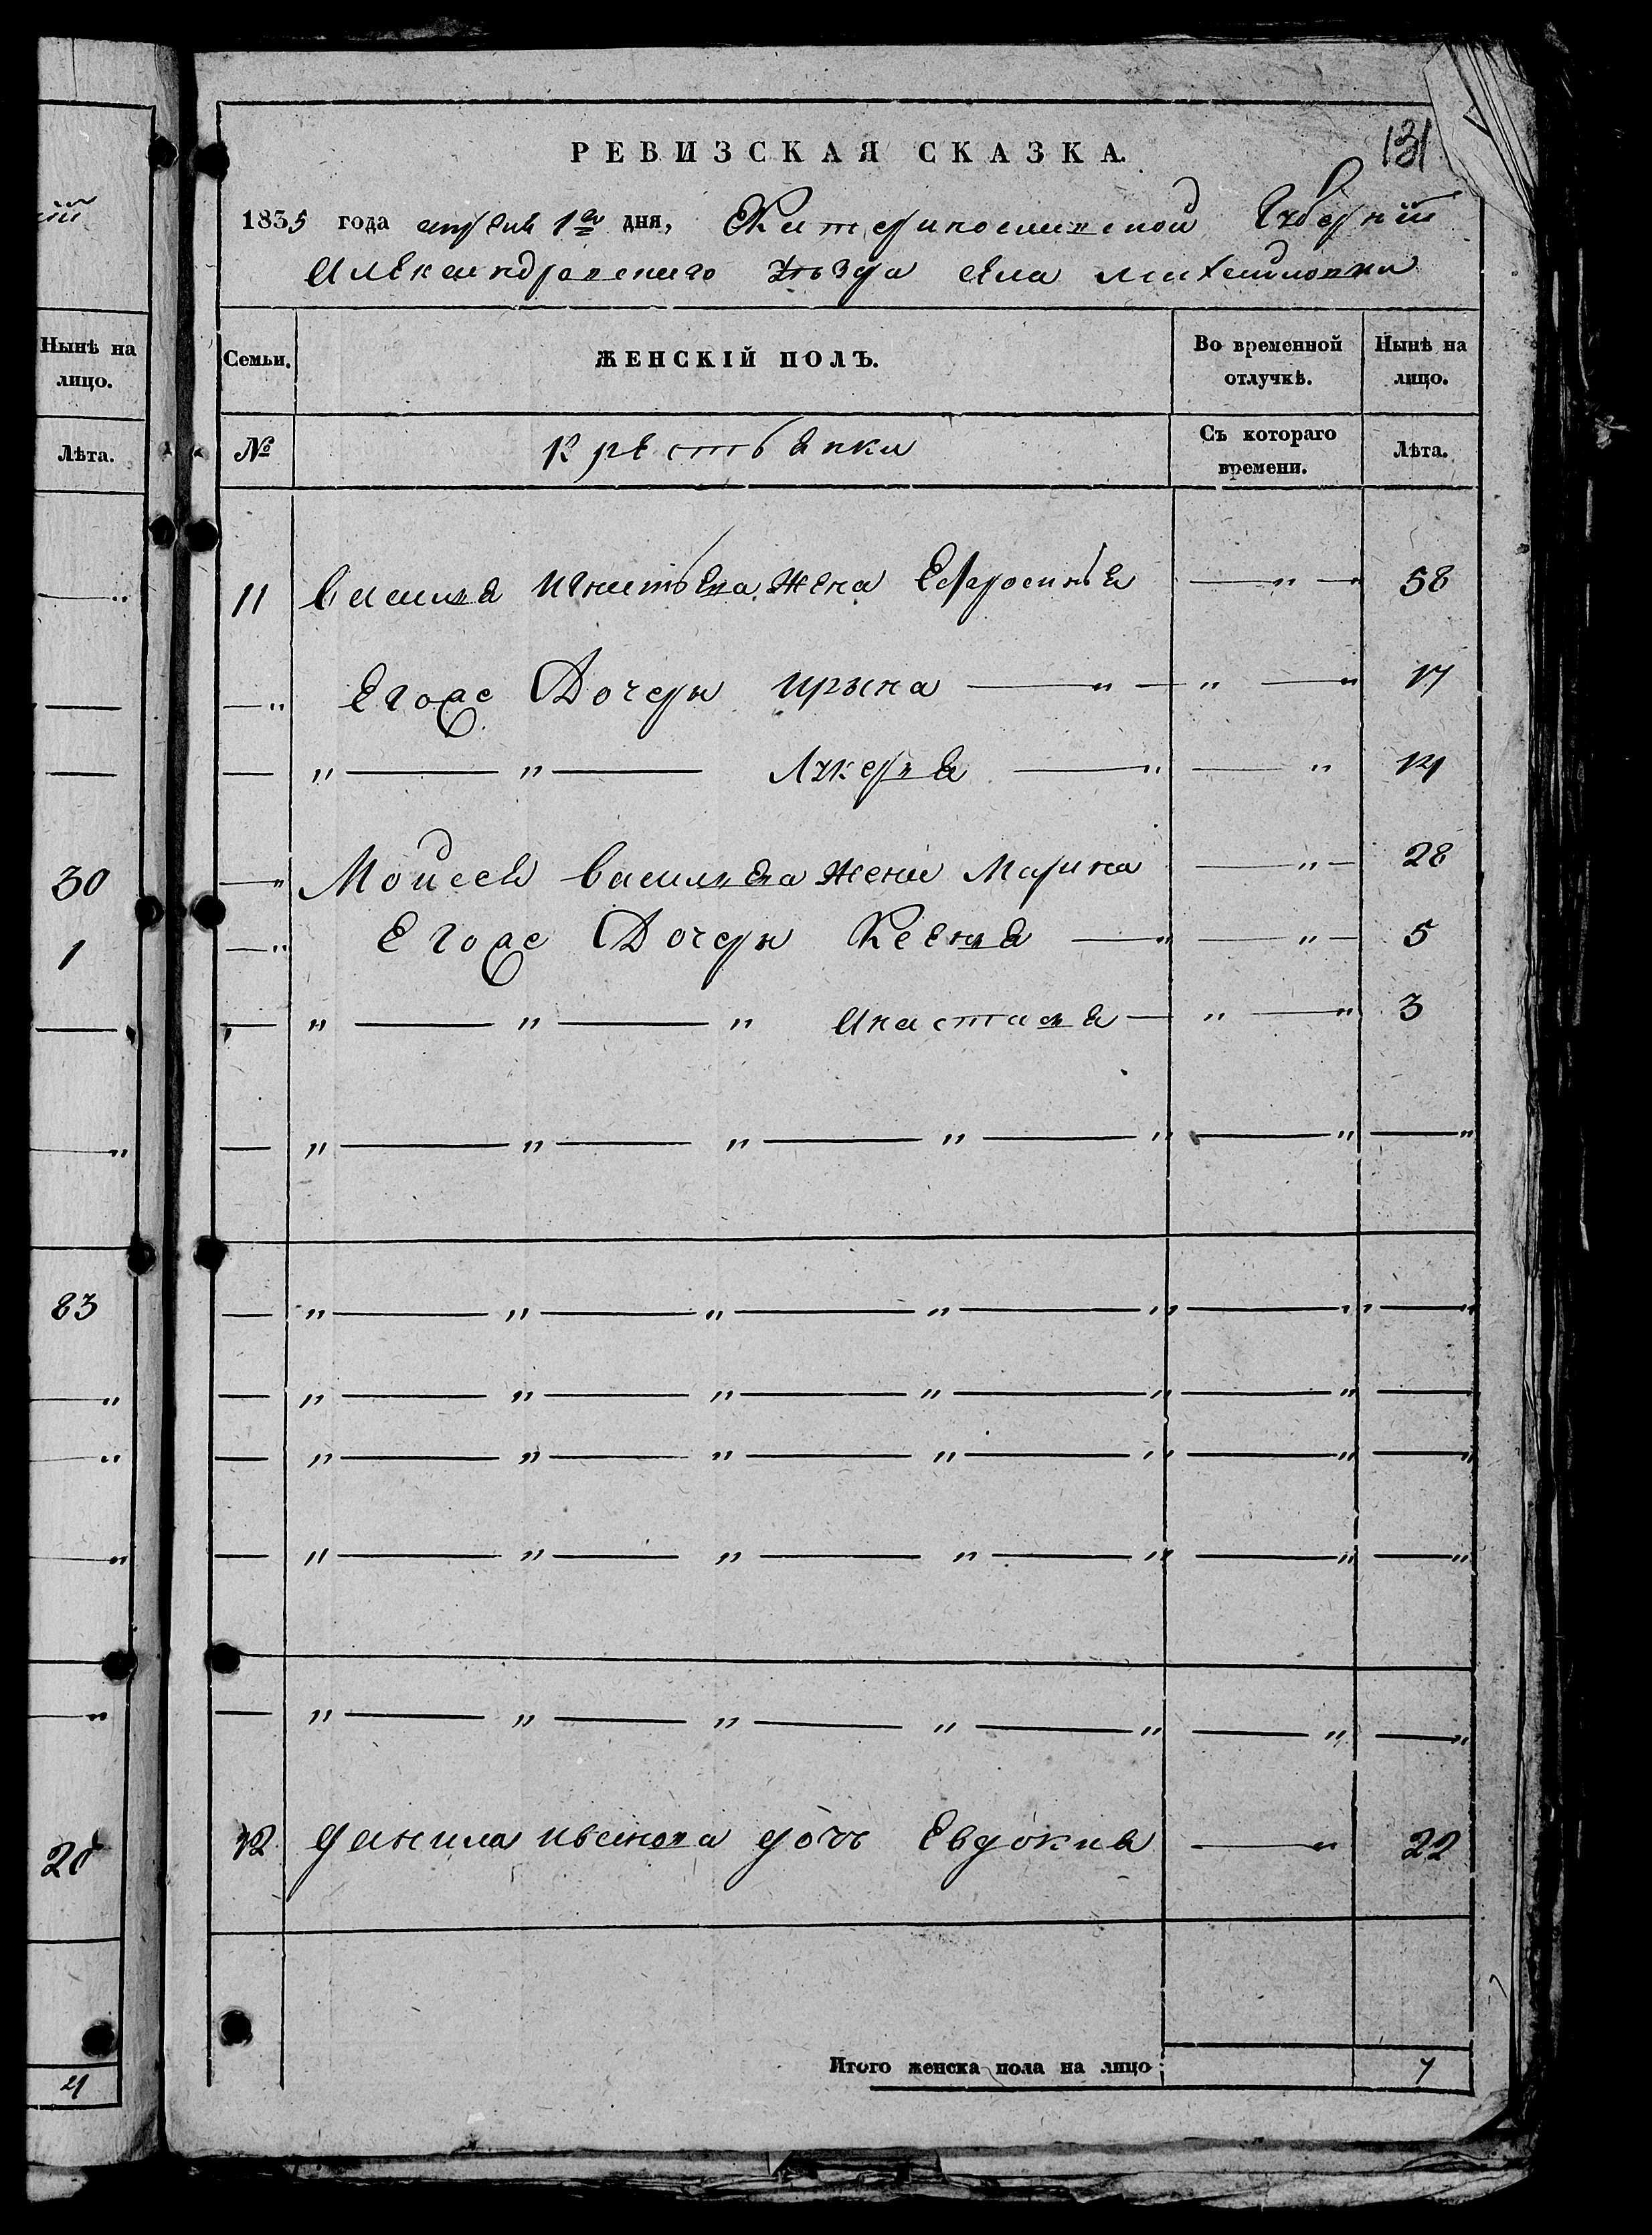 ій
Нынѣ на
лицо.
Лѣта.
30
1
83
20
4
131
РЕВИЗСКАЯ СКАЗКА.
1835 года апреля 1го дня, Екатеринославской Губерніи
Александровскаго уѣзда села Михайловки
Семьи. ЖЕНСКІЙ ПОЛЪ. Во временной отлучкѣ. Нынѣ на лицо.
№ Крестьянки Съ котораго времени. Лѣта.
11 Василья Игнатьева жена Ефросинья — " — 58
— " Егоже Дочери Ирына — " — " — " 17
— " — " — Лукерья — " — " 14
— " Моисея Васильева жена Марина — " — 28
— " Егоже Дочери Ксенья — " — " — 5
— " — " — " Анастасья — " — " 3
— " — " — " — " — " — " — "
— " — " — " — " — " — " — "
— " — " — " — " — " — " —
— " — " — " — " — " — " — "
— " — " — " — " — " — " — "
— " — " — " — " — " — " — "
12 Данила Иванова дочь Евдокия — " 22
Итого женска пола на лицо: 7